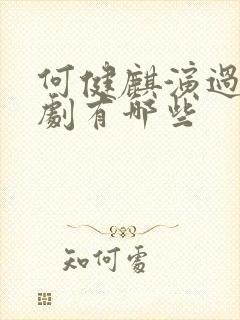 何健麒演過
劇有哪些
知何處